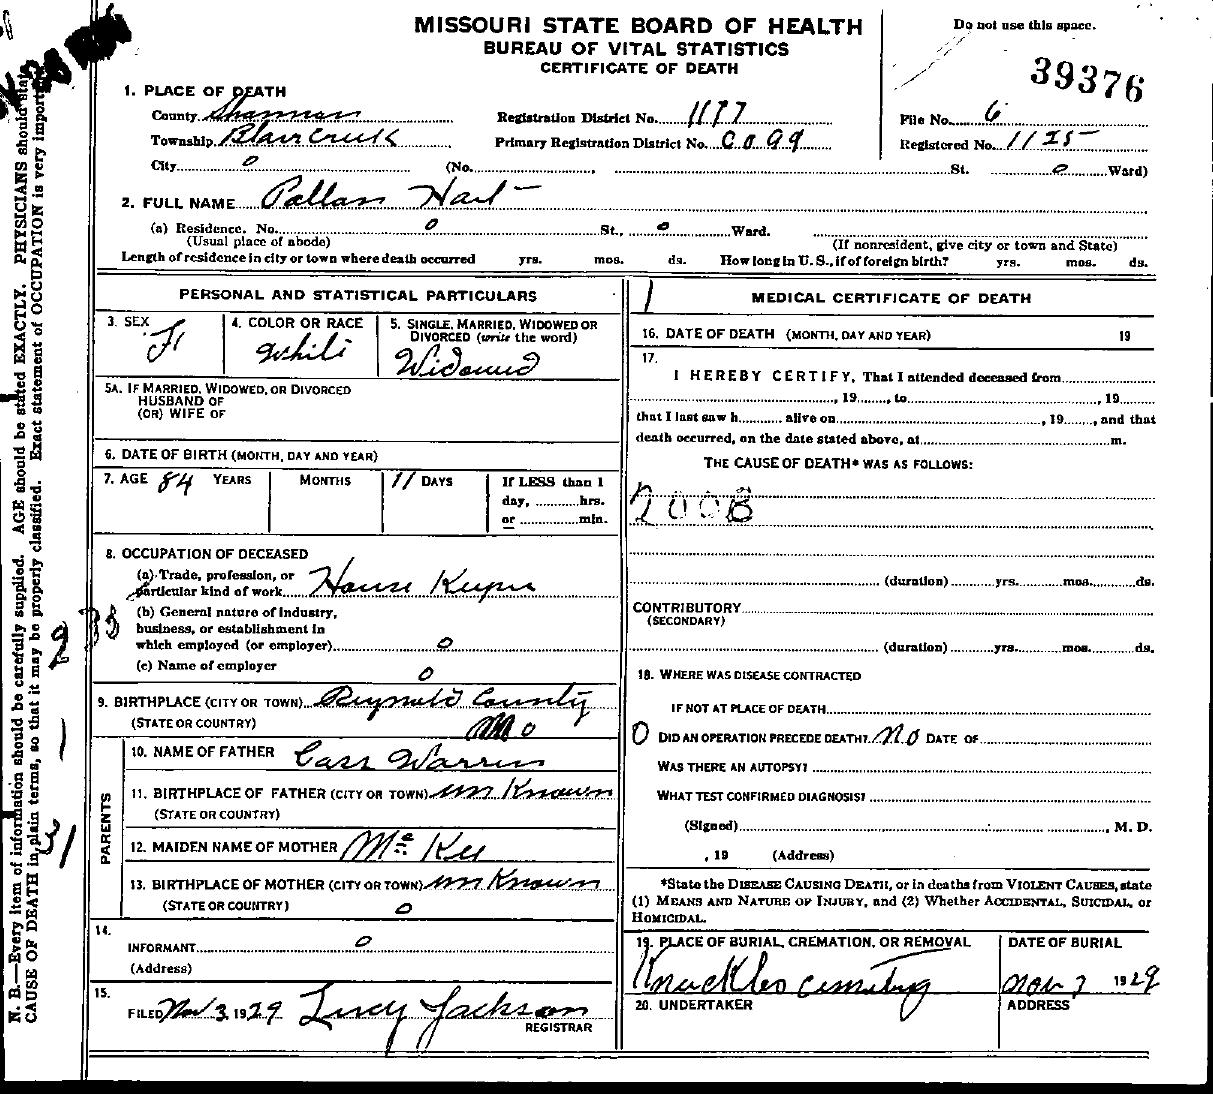 MISSOURI STATE BOARD OF HEALTH
BUREAU OF VITAL STATISTICS
CERTIFICATE OF DEATH
Do not use this space.
39376
1. PLACE OF DEATH
County Shannon Registration District No. 1177 File No. 6
Township Blair Creek Primary Registration District No. Registered No. 1125
City 0 (No. , St. 0 Ward)
2. FULL NAME Pallas Hart
(a) Residence. No. 0 St., 0 Ward.
(Usual place of abode) (If nonresident, give city or town and State)
Length of residence in city or town where death occurred yrs. mos. ds. How long in U. S., if of foreign birth? yrs. mos. ds.
PERSONAL AND STATISTICAL PARTICULARS
3. SEX 4. COLOR OR RACE 5. SINGLE, MARRIED, WIDOWED OR
DIVORCED (write the word)
F White Widowed
5A. IF MARRIED, WIDOWED, OR DIVORCED
HUSBAND OF
(OR) WIFE OF
6. DATE OF BIRTH (MONTH, DAY AND YEAR)
7. AGE 84 YEARS MONTHS 11 DAYS If LESS than 1
day, hrs.
or min.
8. OCCUPATION OF DECEASED
(a) Trade, profession, or
particular kind of work House Keeper
(b) General nature of industry,
business, or establishment in
which employed (or employer) 0
(c) Name of employer 0
9. BIRTHPLACE (CITY OR TOWN) Reynolds County
(STATE OR COUNTRY) Mo
PARENTS
10. NAME OF FATHER Cass Warren
11. BIRTHPLACE OF FATHER (CITY OR TOWN) un Known
(STATE OR COUNTRY)
12. MAIDEN NAME OF MOTHER McKee
13. BIRTHPLACE OF MOTHER (CITY OR TOWN) un Known
(STATE OR COUNTRY) 0
14.
INFORMANT 0
(Address)
15.
FILED Nov 3, 1929 Lucy Jackson
REGISTRAR
MEDICAL CERTIFICATE OF DEATH
16. DATE OF DEATH (MONTH, DAY AND YEAR) 19
17.
I HEREBY CERTIFY, That I attended deceased from
, 19 , to , 19
that I last saw h alive on , 19 , and that
death occurred, on the date stated above, at m.
THE CAUSE OF DEATH* WAS AS FOLLOWS:
200B
(duration) yrs. mos. ds.
CONTRIBUTORY
(SECONDARY)
(duration) yrs. mos. ds.
18. WHERE WAS DISEASE CONTRACTED
IF NOT AT PLACE OF DEATH
0 DID AN OPERATION PRECEDE DEATH? No DATE OF
WAS THERE AN AUTOPSY?
WHAT TEST CONFIRMED DIAGNOSIS?
(Signed) , M. D.
, 19 (Address)
*State the DISEASE CAUSING DEATH, or in deaths from VIOLENT CAUSES, state
(1) MEANS AND NATURE OF INJURY, and (2) Whether ACCIDENTAL, SUICIDAL, or
HOMICIDAL.
19. PLACE OF BURIAL, CREMATION, OR REMOVAL DATE OF BURIAL
Knuckles cemetery Nov 1929
20. UNDERTAKER ADDRESS
N. B.—Every item of information should be carefully supplied. AGE should be stated EXACTLY. PHYSICIANS should state
CAUSE OF DEATH in plain terms, so that it may be properly classified. Exact statement of OCCUPATION is very important.
31